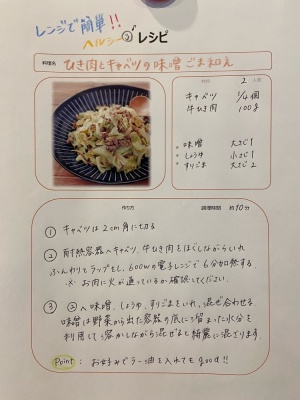 レンジで簡単!!
ヘルシー② レシピ
料理名 ひき肉とキャベツの味噌ごま和え
材料 2 人前
キャベツ 1/4個
牛ひき肉 100g
* 味噌 大さじ1
* しょうゆ 小さじ1
* すりごま 大さじ2
作り方 調理時間 約10分
① キャベツは2cm角に切る
② 耐熱容器へキャベツ、牛ひき肉をほぐしながらいれ
ふんわりとラップをし、600wの電子レンジで6分加熱する。
※ お肉に火が通っているか確認してください。
③ ②へ味噌、しょうゆ、すりごまをいれ、混ぜ合わせる。
味噌は野菜から出た容器の底に溜まった水分を
利用して溶かしながら混ぜると綺麗に混ざります。
Point : お好みでラー油を入れてもgood!!